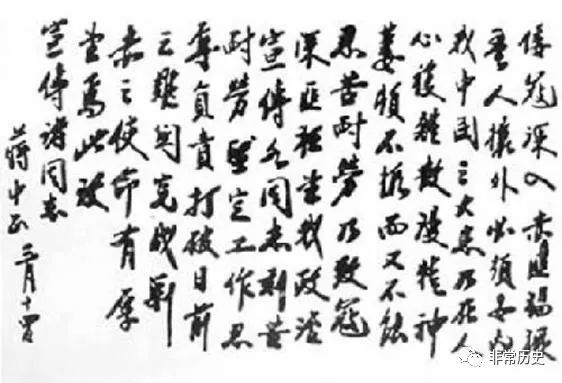 倭寇深入赤匪猖獗
吾人攘外必須安內
我中國之大患乃在人
心複雜散漫精神
萎頓不振而又不能
忍苦耐勞乃致寇
深匪望我政治
宣傳各同志刻苦
耐勞堅定工作忍
辱負責打破目前
之難關完成剿
赤之使命有厚
望焉此致
宣傳諸同志
蔣中正 月十
非常历史